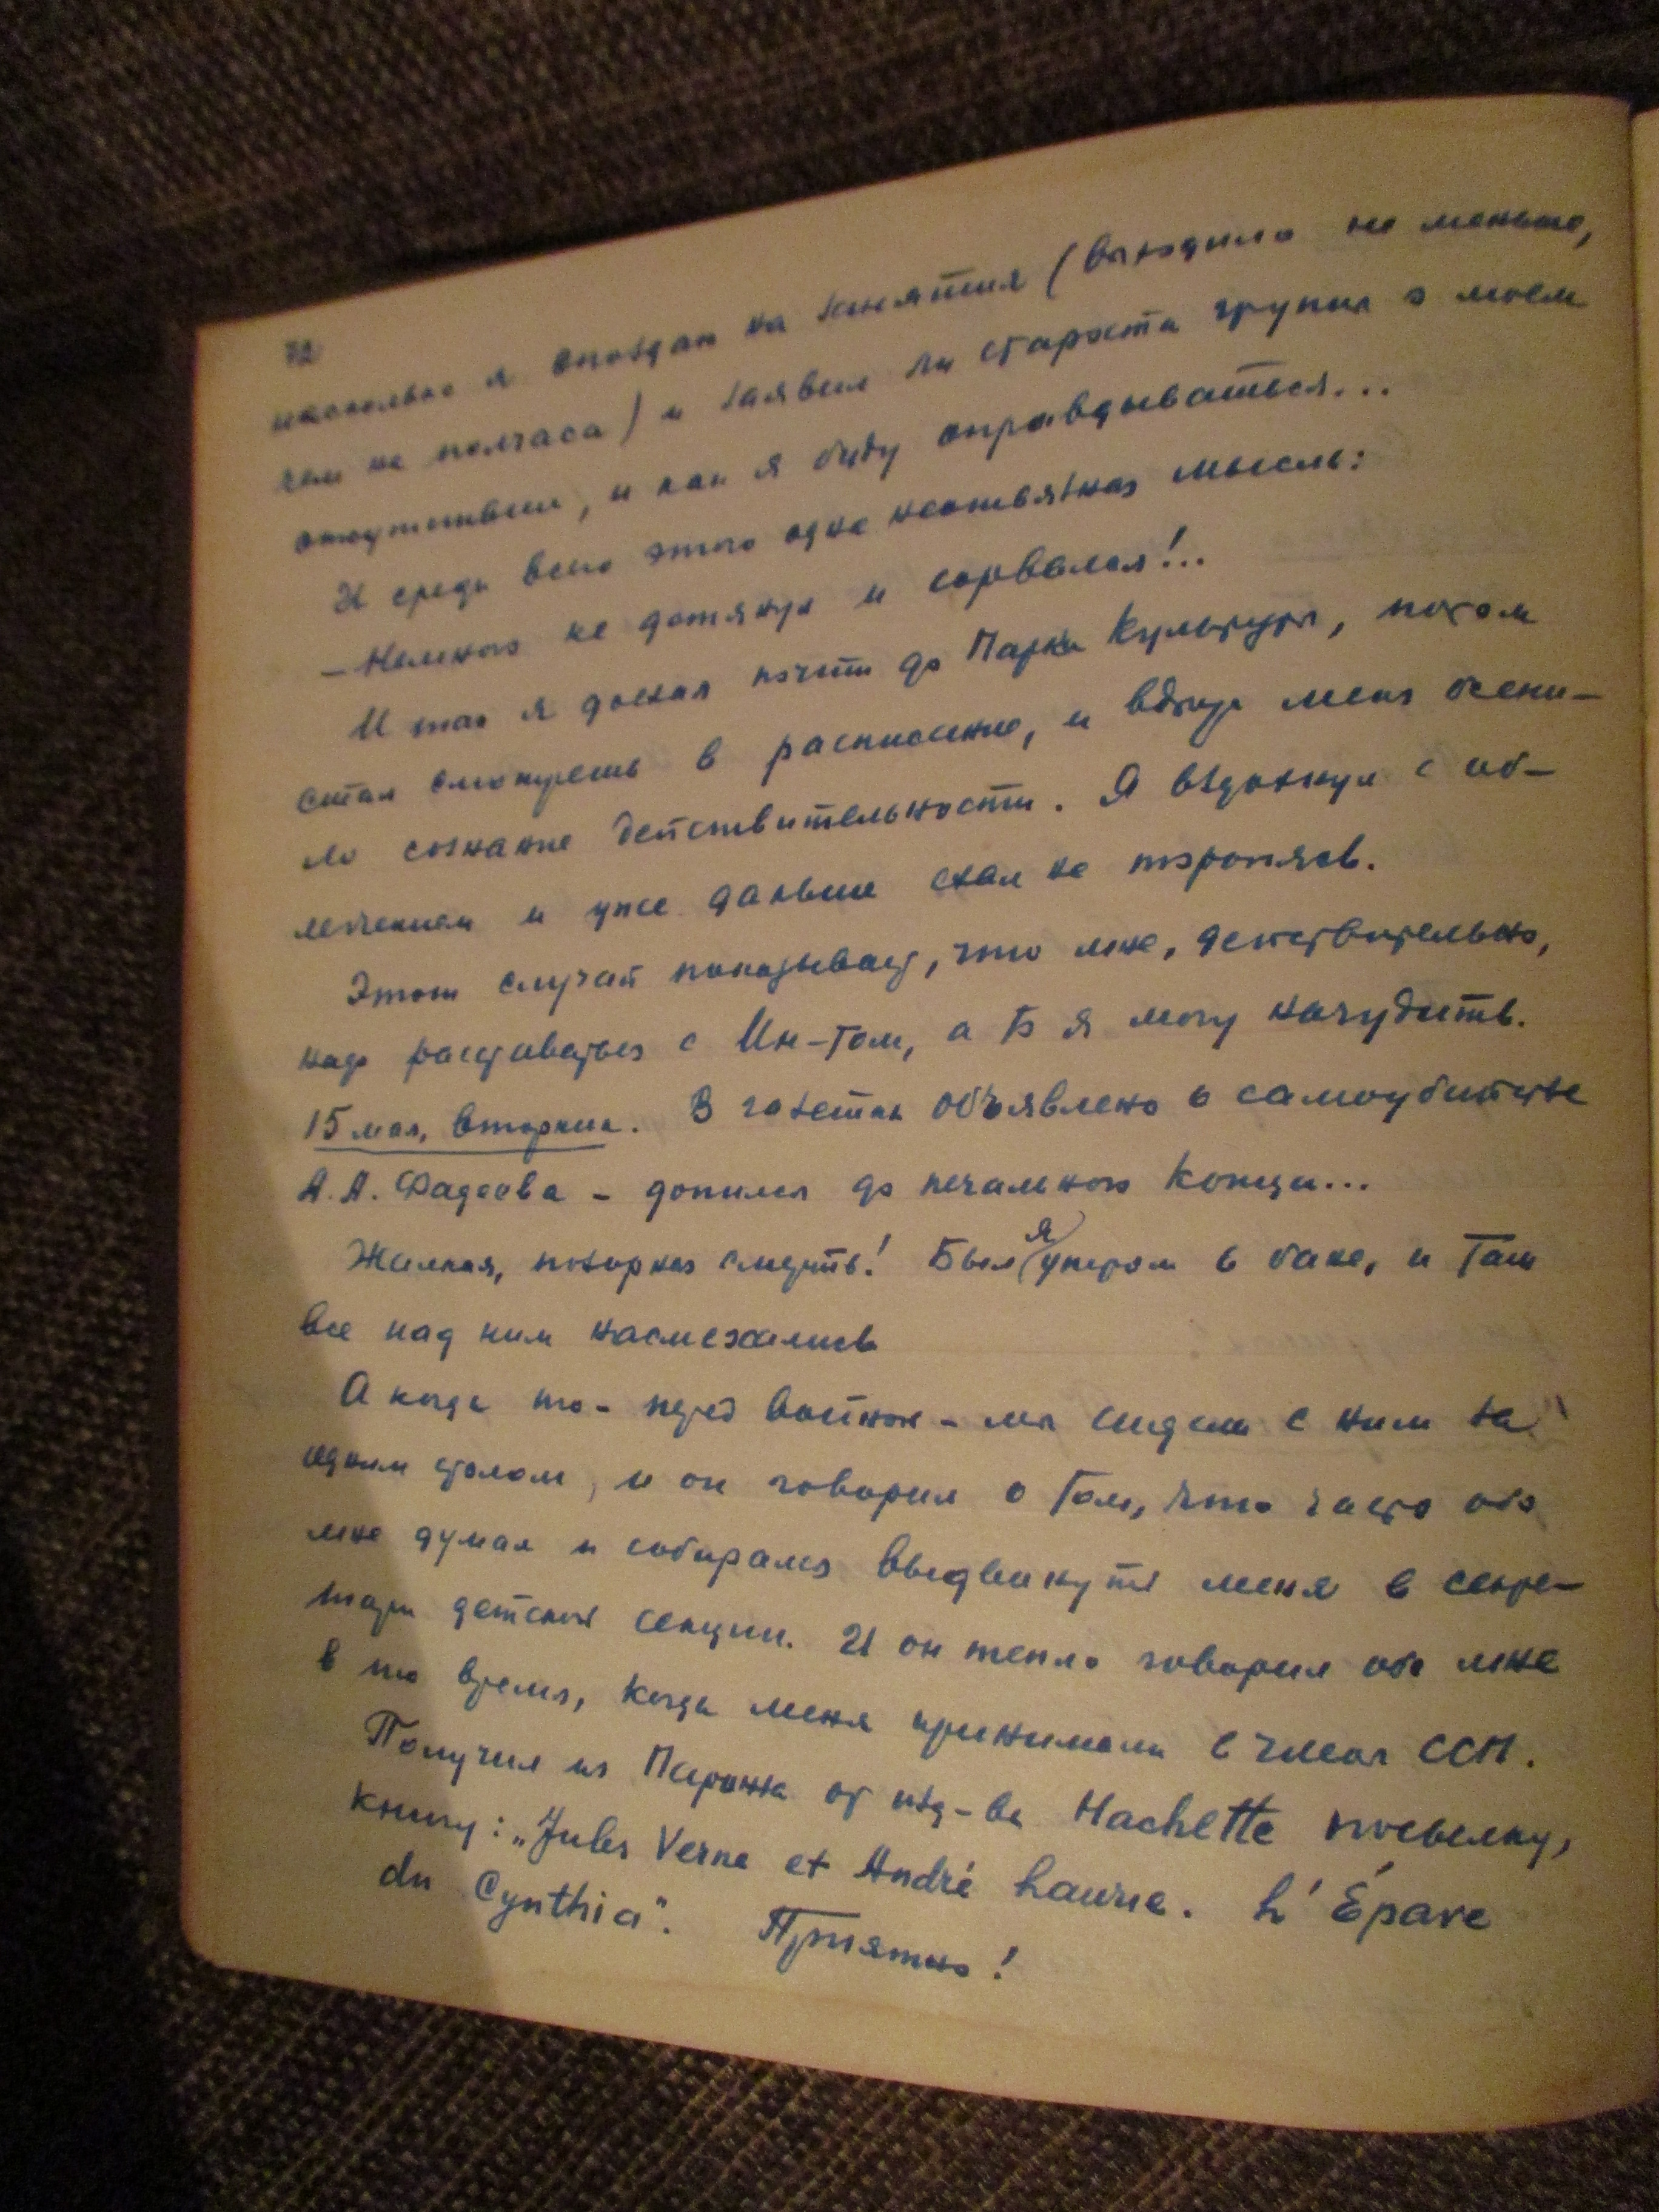 72
насколько я опоздаю на занятия (выходило не меньше,
чем на полчаса) и заявил ли староста группы о моем
отсутствии, и как я буду оправдываться...
И среди всего этого одна неотвязная мысль:
— Немного не дотянул и сорвался!..
И так я доехал почти до Парка Культуры, потом
стал смотреть в расписание, и вдруг меня осени-
ло сознание действительности. Я вздохнул с об-
легчением и уже дальше ехал не торопясь.
Этот случай показывает, что мне, действительно,
надо расставаться с Ин-том, а то я могу начудить.
15 мая, вторник. В газетах объявлено о самоубийстве
А. А. Фадеева – допился до печального конца...
Жалкая, позорная смерть! Был я утром в бане, и там
все над ним насмехались
А когда то – перед войной – мы сидели с ним за
одним столом, и он говорил о том, что часто обо
мне думал и собирался выдвинуть меня в секре-
тари детской секции. И он тепло говорил обо мне
в то время, когда меня принимали в члены ССП.
Получил из Парижа от изд-ва Hachette посылку,
книгу: „Jules Verne et André Laurie. L'Épave
du Cynthia". Приятно!